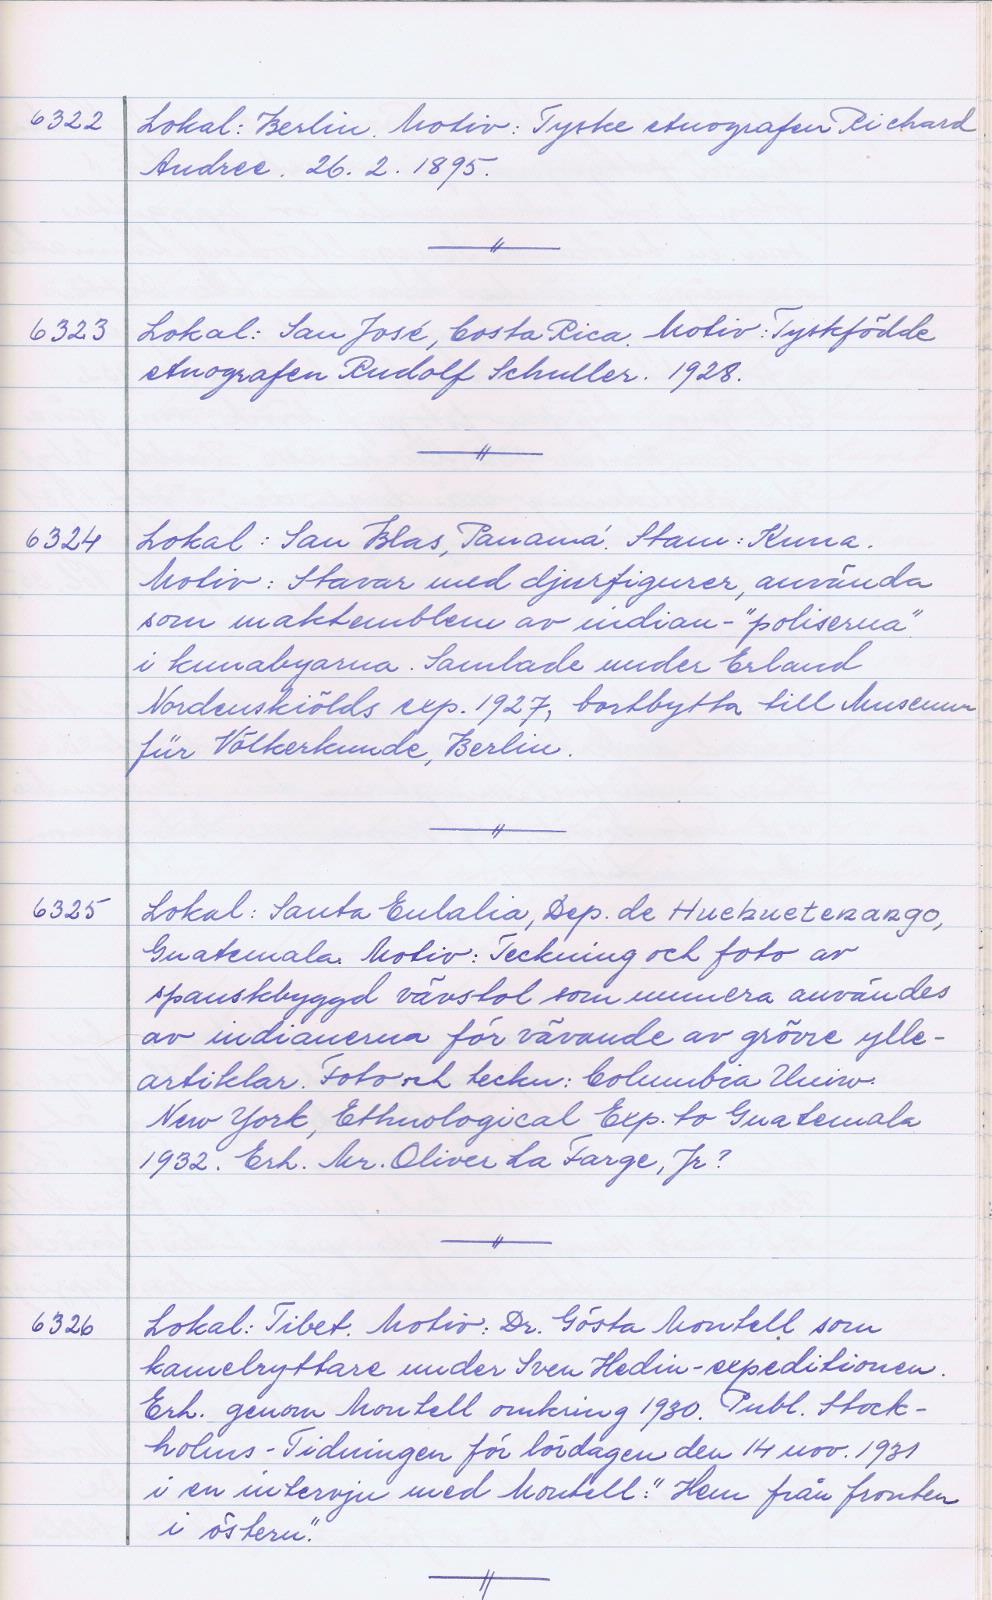 6322 Lokal: Berlin. Motiv: Tyske etnografen Richard
Andree. 26. 2. 1895.
6323 Lokal: San José, Costa Rica. Motiv: Tyskfödde
etnografen Rudolf Schuller. 1928.
6324 Lokal: San Blas, Panamá. Stam: Kuna.
Motiv: Stavar med djurfigurer, använda
som maktemblem av indian-"poliserna"
i kunabyarna. Samlade under Erland
Nordenskiölds exp. 1927, bortbytta till Museum
für Völkerkunde, Berlin.
6325 Lokal: Santa Eulalia, Dep. de Huehuetenango,
Guatemala. Motiv: Teckning och foto av
spanskbyggd vävstol som numera användes
av indianerna för vävande av grövre ylle-
artiklar. Foto och teckn: Columbia Univ.
New York, Ethnological Exp. to Guatemala
1932. Erh. Mr. Oliver La Farge, Jr?
6326 Lokal: Tibet. Motiv: Dr. Gösta Montell som
kamelryttare under Sven Hedin-expeditionen.
Erh. genom Montell omkring 1930. Publ. Stock-
holms-Tidningen för lördagen den 14 nov. 1931
i en intervju med Montell: "Hem från fronten
i östern".